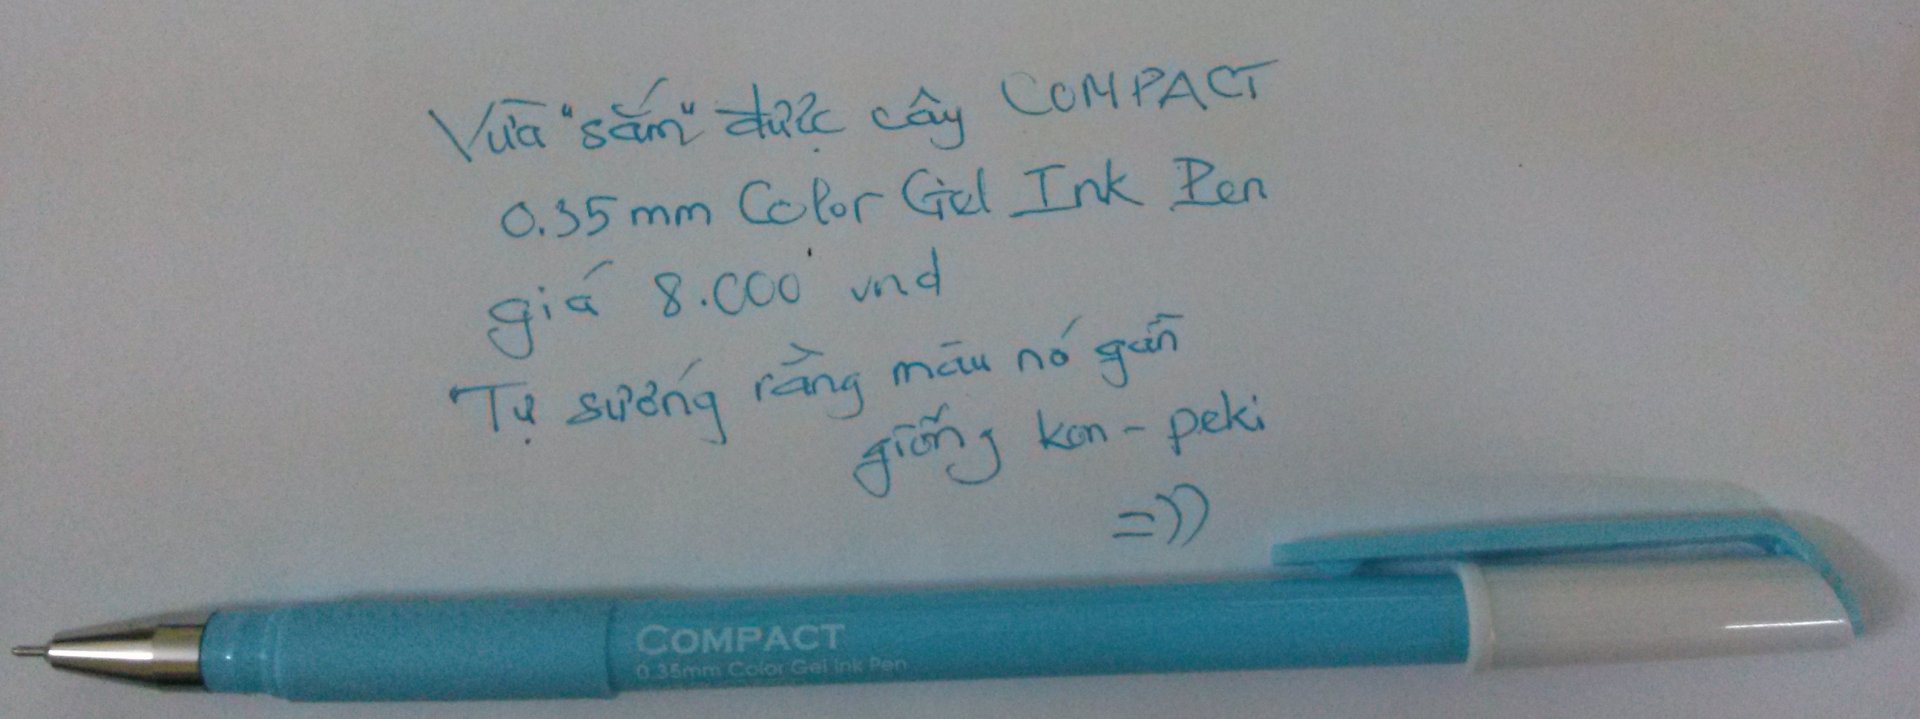 Vừa "sắm" được cây COMPACT
0.35mm Color Gel Ink Pen
giá 8.000 vnd
Tự sướng rằng màu nó gần
giống kon-peki
=))
COMPACT
0.35mm Color Gel Ink Pen